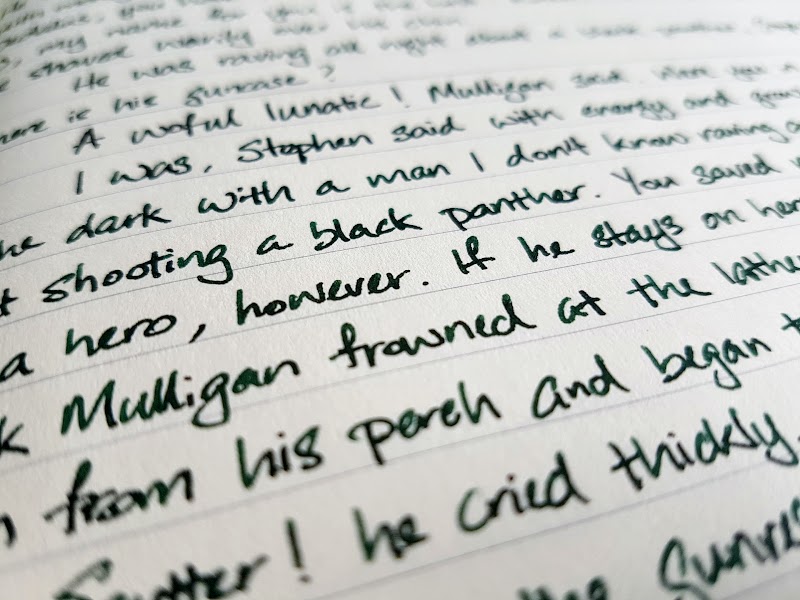 my name
shaves warily over his chin
He was raving all night about a black panther,
here is his guncase?
A woful lunatic! Mulligan said. Were you
I was, Stephen said with energy and
he dark with a man I don't know raving
shooting a black panther. You saved
a hero, however. If he stays on her
Mulligan frowned at the lathe
from his perch and began t
Scutter! he cried thickly.
the Sunris